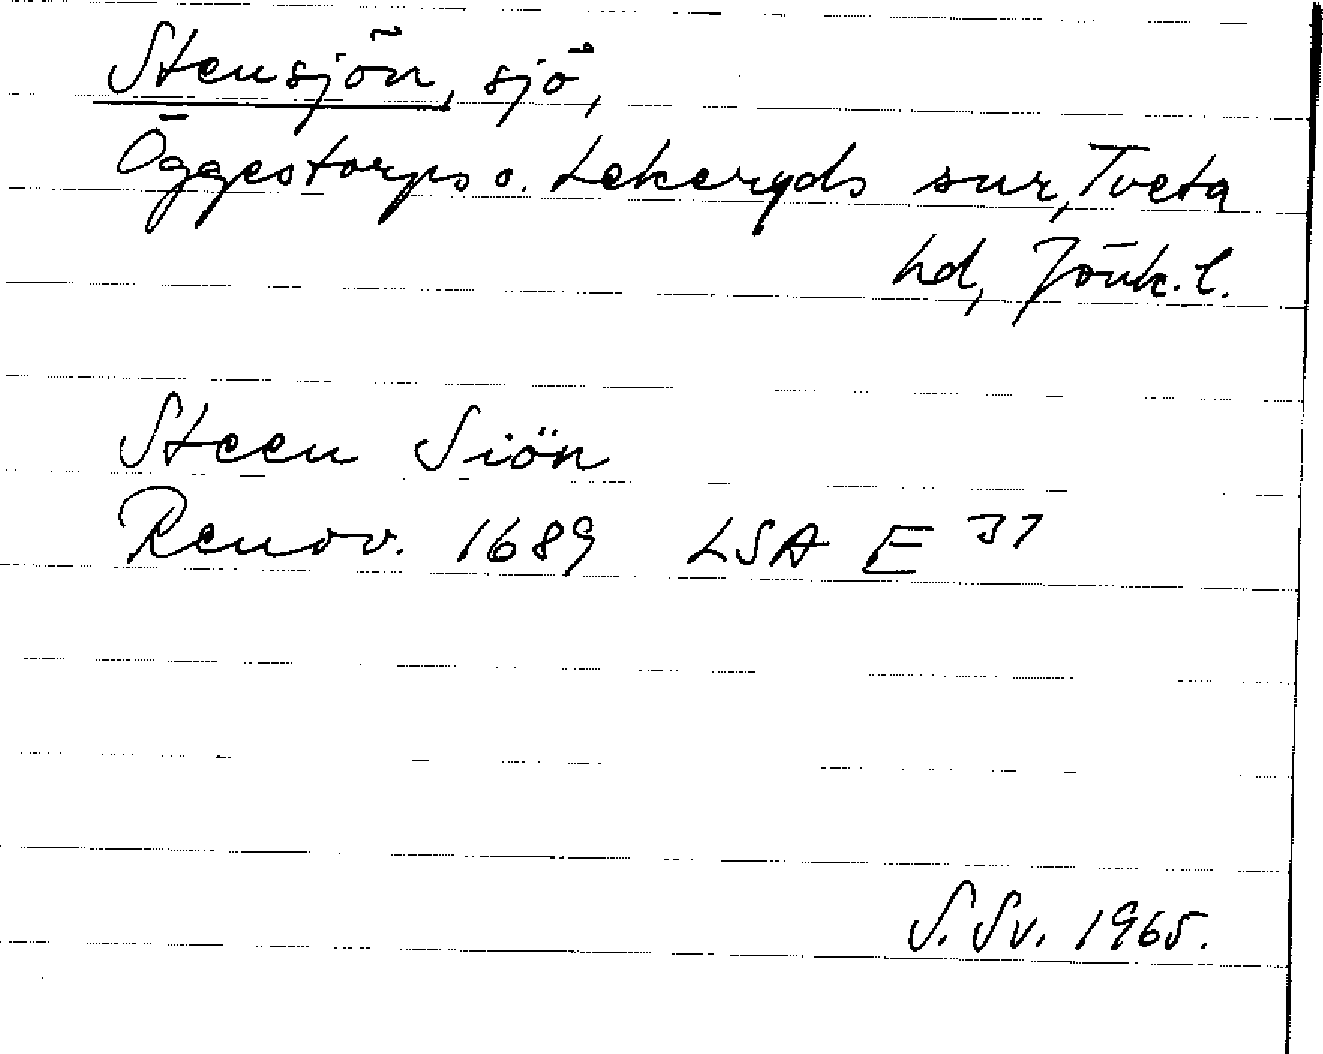 Stensjön, sjö,
Öggestorps o. Lekeryds snr, Tveta
hd, Jönk. l.
Steen Siön
Renov. 1689 LSA E 37
S. Sv. 1965.